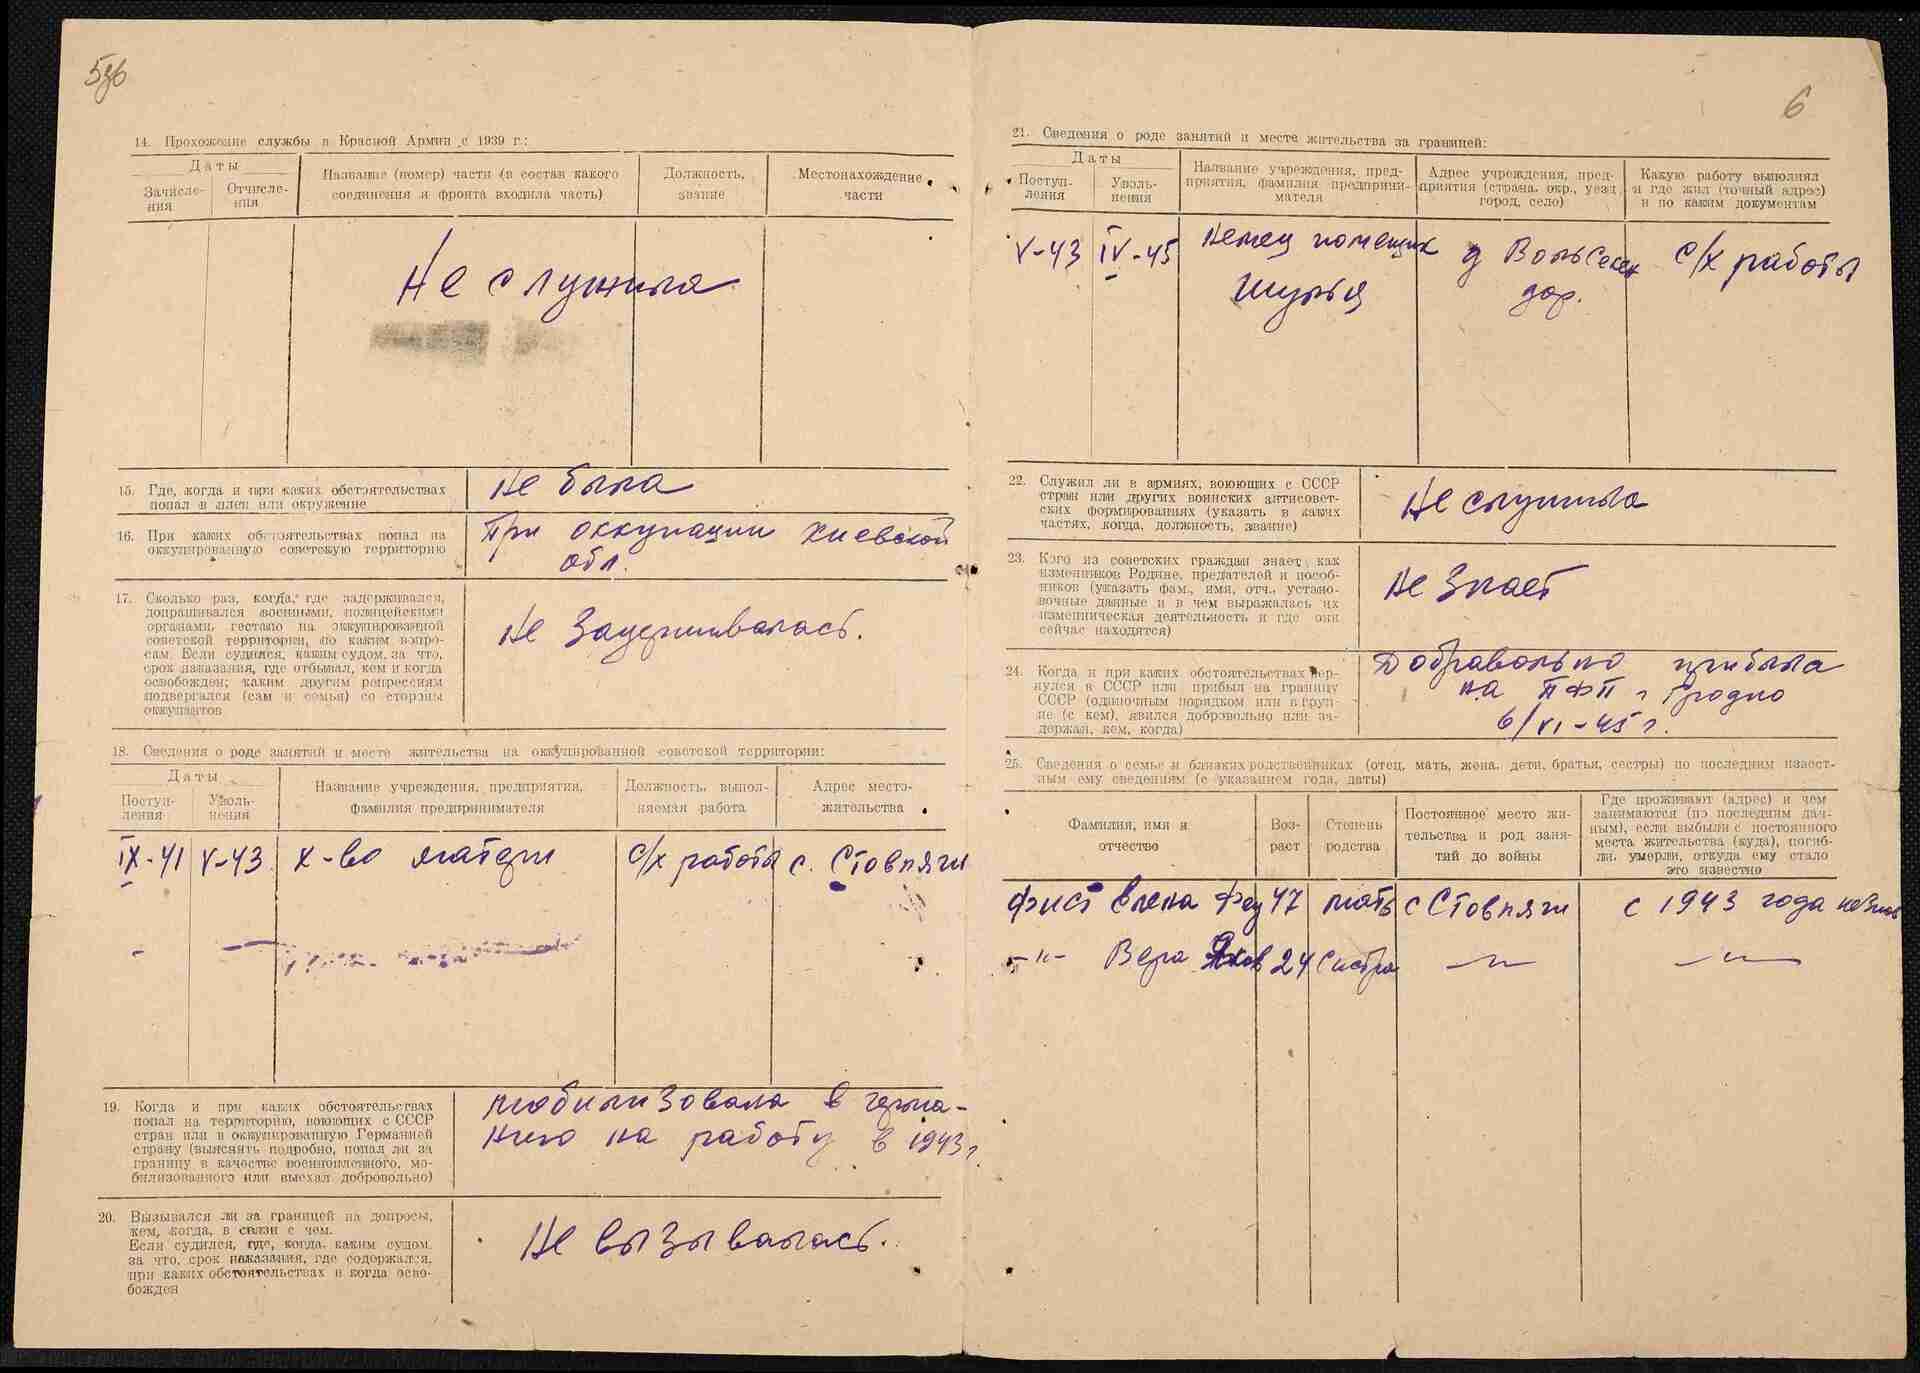 14. Прохождение службы в Красной Армии с 1939 г.:
Даты
Зачисле-
ния
Отчисле-
ния
Название (номер) части (в состав какого
соединения и фронта входила часть)
Должность,
звание
Местонахождение
части
Не служила
15. Где, когда и при каких обстоятельствах
попал в плен или окружение
Не была
16. При каких обстоятельствах попал на
оккупированную советскую территорию
При оккупации Киевской
обл.
17. Сколько раз, когда, где задерживался,
допрашивался военными, полицейскими
органами, гестапо на оккупированной
советской территории, по каким вопро-
сам. Если судился, каким судом, за что,
срок наказания, где отбывал, кем и когда
освобожден; каким другим репрессиям
подвергался (сам и семья) со стороны
оккупантов
Не задерживалась.
18. Сведения о роде занятий и месте жительства на оккупированной советской территории:
Даты
Поступ-
ления
Уволь-
нения
Название учреждения, предприятия,
фамилия предпринимателя
Должность, выпол-
няемая работа
Адрес место-
жительства
IX-41 V-43 х-во матери с/х работа с. Стовпяги
19. Когда и при каких обстоятельствах
попал на территорию, воюющих с СССР
стран или в оккупированную Германией
страну (выяснить подробно, попал ли за
границу в качестве военнопленного, мо-
билизованного или выехал добровольно)
мобилизовала в герма-
нию на работу в 1943 г.
20. Вызывался ли за границей на допросы,
кем, когда, в связи с чем.
Если судился, где, когда, каким судом,
за что, срок наказания, где содержался,
при каких обстоятельствах и когда осво-
божден
Не вызывалась.
6
21. Сведения о роде занятий и месте жительства за границей:
Даты
Поступ-
ления
Уволь-
нения
Название учреждения, пред-
приятия, фамилия предприни-
мателя
Адрес учреждения, пред-
приятия (страна, окр., уезд,
город, село)
Какую работу выполнял
и где жил (точный адрес)
и по каким документам
V-43 IV-45 Немец помещик д с/х работы
Шульц дор.
22. Служил ли в армиях, воюющих с СССР
стран или других воинских антисовет-
ских формированиях (указать в каких
частях, когда, должность, звание)
Не служила
23. Кого из советских граждан знает, как
изменников Родине, предателей и пособ-
ников (указать фам., имя, отч., устано-
вочные данные и в чем выражалась их
изменническая деятельность и где они
сейчас находятся)
Не знает
24. Когда и при каких обстоятельствах вер-
нулся в СССР или прибыл на границу
СССР (одиночным порядком или в груп-
пе (с кем), явился добровольно или за-
держан, кем, когда)
Добравольно прибыла
на ПФП г Гродно
6/VI-45 г.
25. Сведения о семье и близких родственниках (отец, мать, жена, дети, братья, сестры) по последним извест-
ным ему сведениям (с указанием года, даты)
Фамилия, имя и
отчество
Воз-
раст
Степень
родства
Постоянное место жи-
тельства и род заня-
тий до войны
Где проживают (адрес) и чем
занимаются (по последним дан-
ным), если выбыли с постоянного
места жительства (куда), погиб-
ли, умерли, откуда ему стало
это известно
Фист Елена Фед 47 мать с Стовпяги с 1943 года
-"- Вера Яков 24 Систра -"- -"-